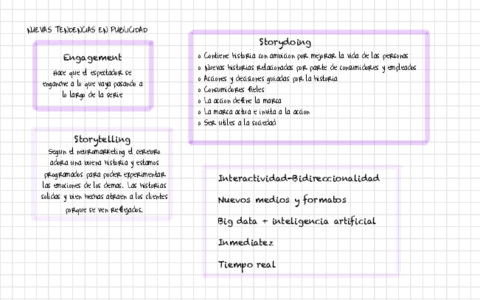 NUEVAS TENDENCIAS EN PUBLICIDAD
Engagement
Hace que el espectador se
enganche a lo que vaya pasando a
lo largo de la serie
Storydoing
o Contiene historia con ambicion por mejorar la vida de las personas
o Nuevas historias relacionadas por parte de consumidores y empleados
o Acciones y decisiones guiadas por la historia
o Consumidores fieles
o La accion define la marca
o La marca activa e invita a la accion
o Ser utiles a la sociedad
Storytelling
Segun el neuromarketing el cerebro
adora una buena historia y estamos
programados para poder experimentar
las emociones de los demas. Las historias
solidas y bien hechas atraen a los clientes
porque se ven reflejados.
Interactividad-Bidireccionalidad
Nuevos medios y formatos
Big data + inteligencia artificial
Inmediatez
Tiempo real